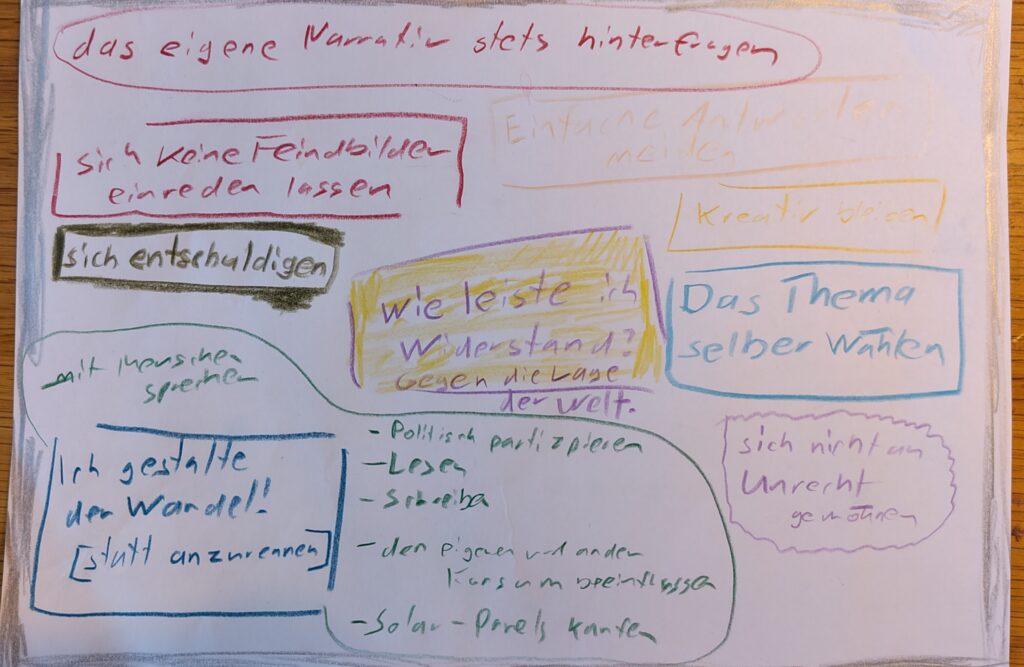 das eigene Narrativ stets hinterfragen
Einfache Antworten
meiden
sich keine Feindbilder
einreden lassen
Kreativ bleiben
sich entschuldigen
wie leiste ich
Widerstand?
Gegen die Lage
der Welt.
Das Thema
selber Wählen
mit Menschen
sprechen
- Politisch partizpieren
- Lesen
- Schreiben
- den eigenen und anderen
Konsum beeinflussen
- Solar-Panels kaufen
Ich gestalte
den Wandel!
[statt anzurennen]
sich nicht an
Unrecht
gewöhnen